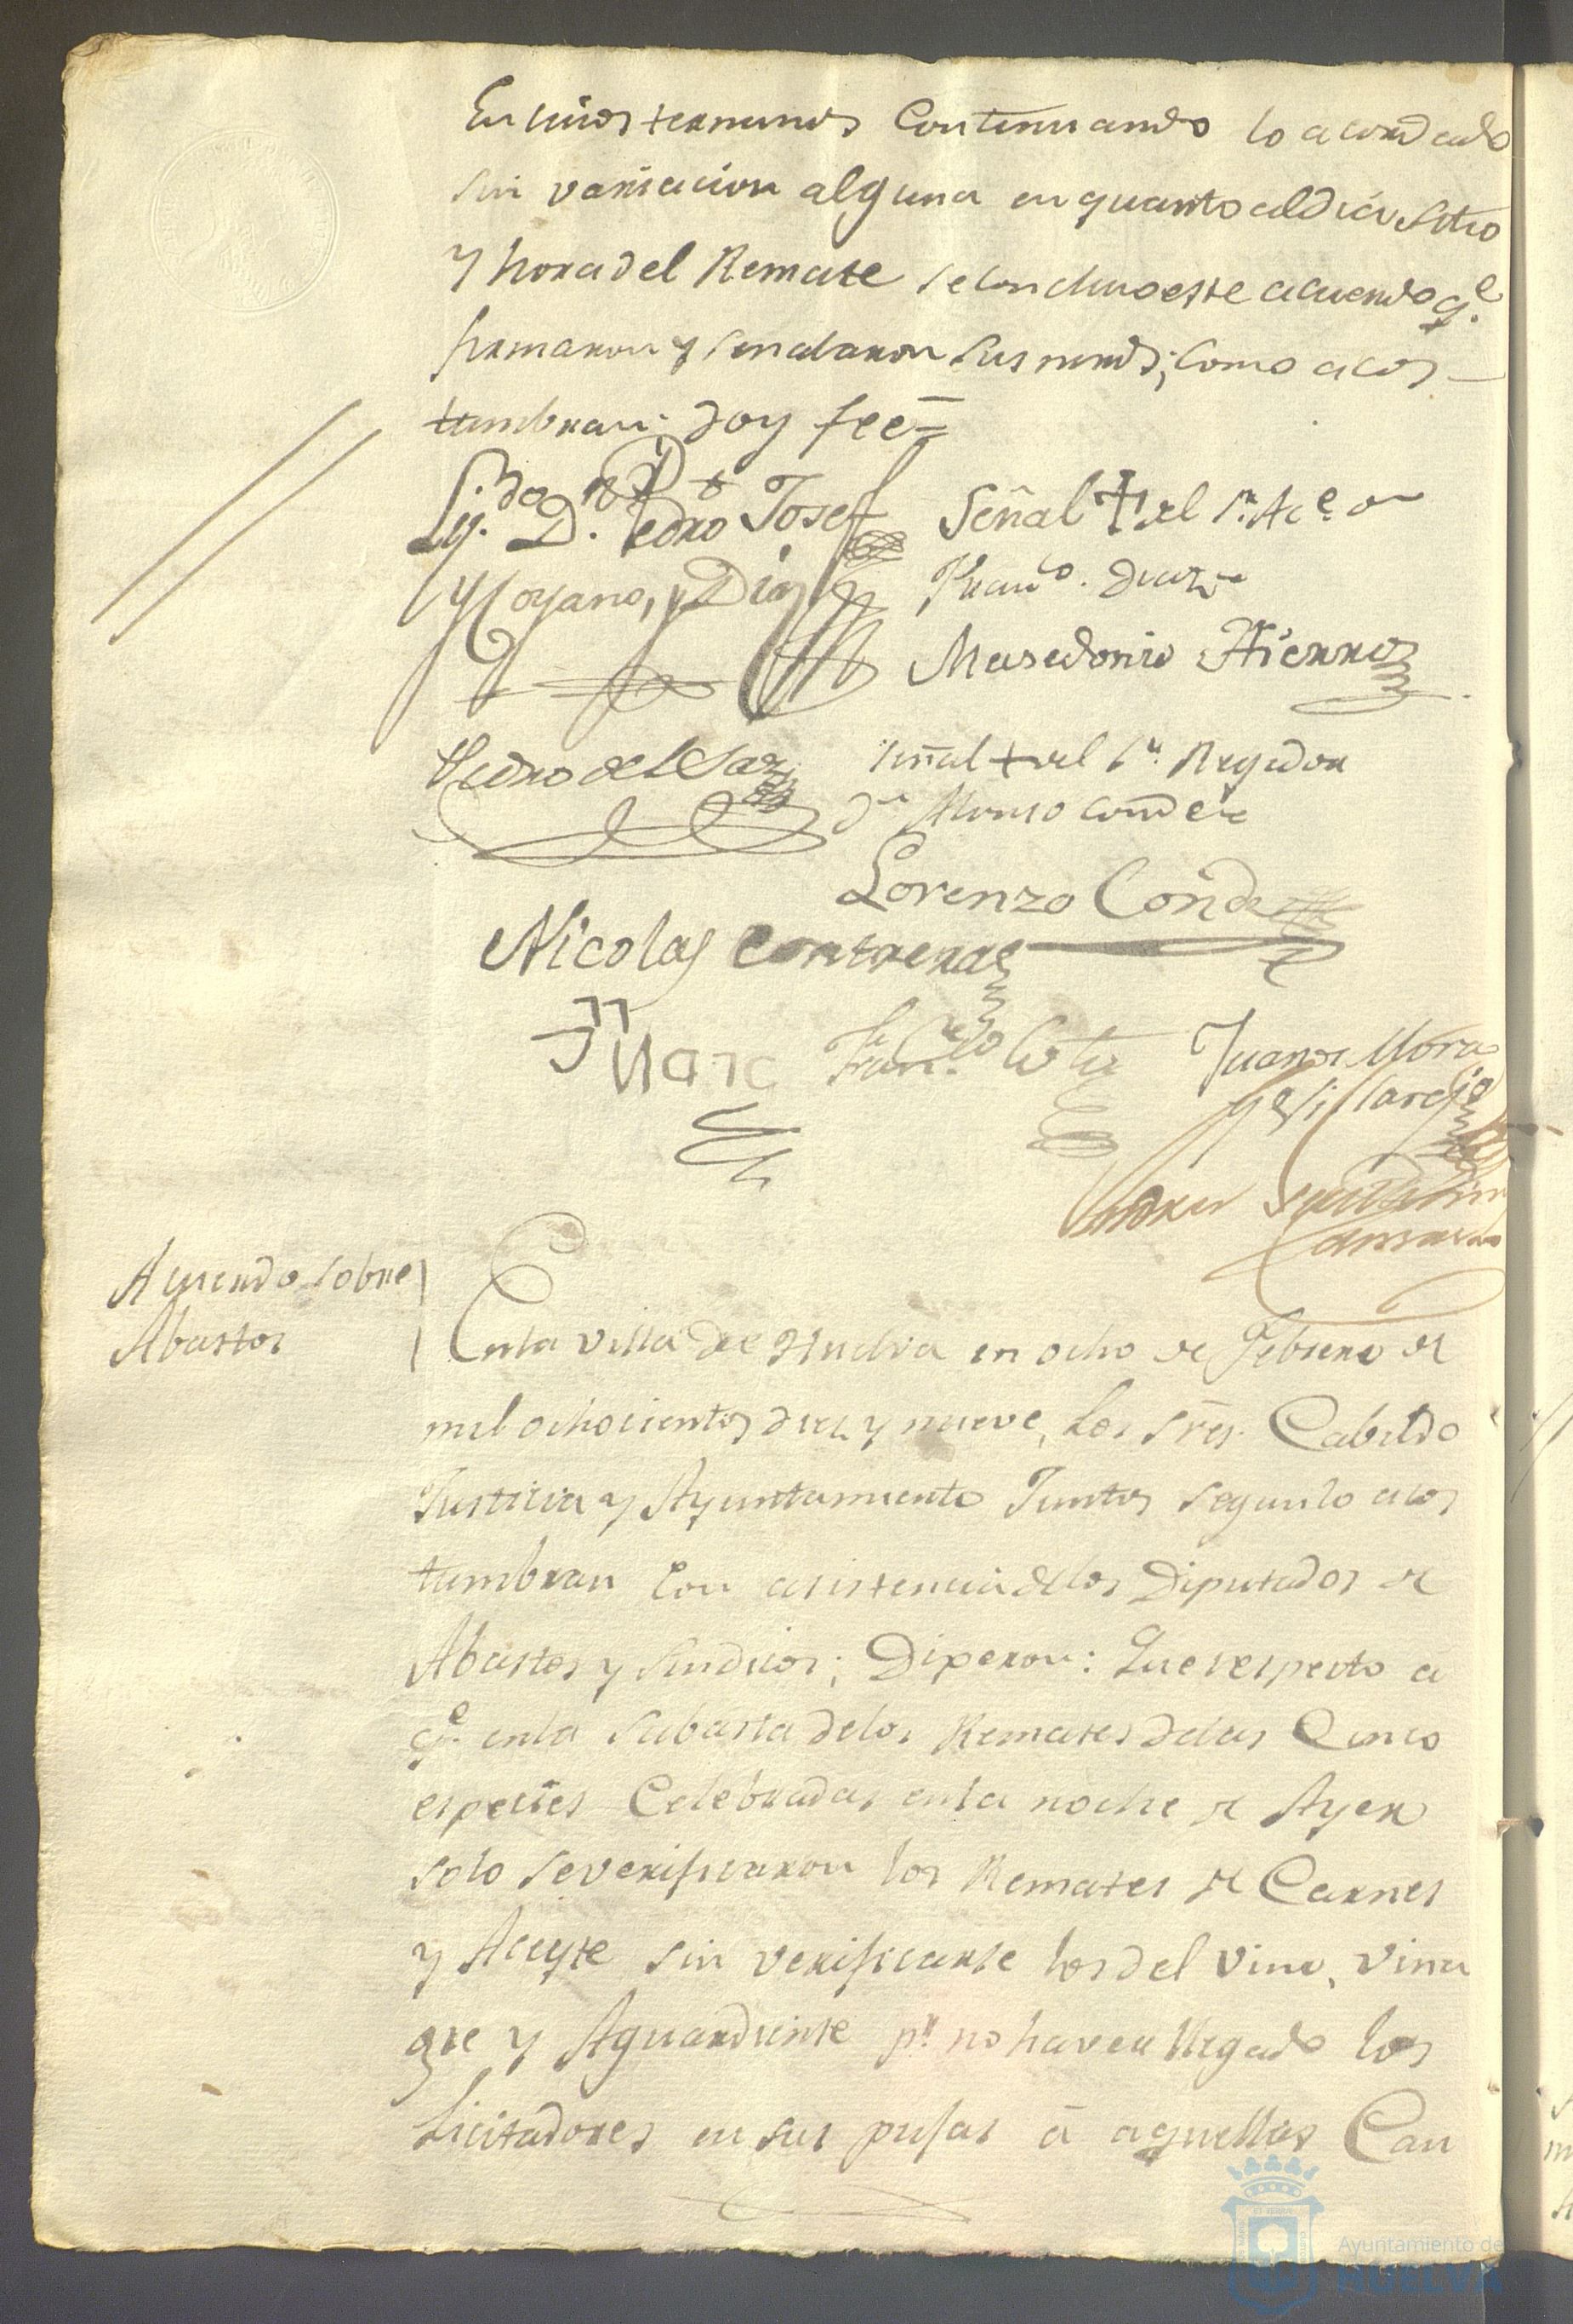 En cuios terminos Continuando lo acordado
sin variacion alguna en quanto al dia sitio
y hora del Remate se concluio este acuerdo q.e
firmaron y señalaron sus mrds; como acos-
tumbran: doy feé=
Ly.do D.n Pedro Josef
Moyano, y Diaz
Señal + del S.r Alc.e or
Fran.co Diaz
Masedonio Hierro
Pedro de L
señal + del S.r Regidor
d.n Alonso Conde
Lorenzo Conde
Nicolas Contreras
Fran.co
Juan de Mora
y Villarejo
Andres
Camacho
Acuerdo sobre
Abastos
En la villa de Huelva en ocho de Febrero de
mil ochocientos diez y nueve, Los Sres. Cabildo
Justicia y Ayuntamiento Juntos segun lo acos
tumbran con asistencia de los Diputados de
Abastos y Sindicos; Dixeron: Que respecto a
q.e en la Subasta de los Remates de las Cinco
especies Celebradas en la noche de Ayer
solo se verificaron los Remates de Carnes
y Aceyte sin verificarse los del vino, vina
gre y Aguardiente p.r no haver llegado los
Licitadores en sus pujas á aquellas Can
Ayuntamiento de
HUELVA